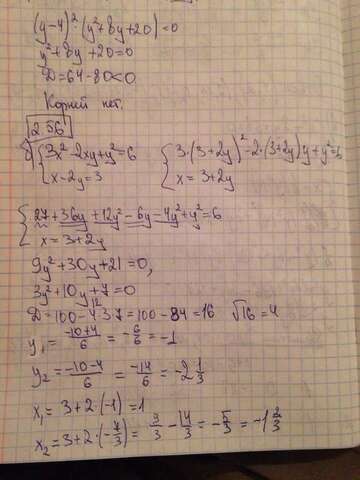 (y-4)²·(y²+8y+20)=0
y²+8y+20=0
D=64-80<0
Корней нет.
256
б) {3x²-2xy+y²=6 {3·(3+2y)²-2·(3+2y)y+y²=6
x-2y=3 x=3+2y
{27+36y+12y²-6y-4y²+y²=6
x=3+2y
9y²+30y+21=0,
3y²+10y+7=0
12
D=100-4·3·7=100-84=16 √16=4
y₁=-10+4/6=-6/6=-1
y₂=-10-4/6=-14/6=-2 1/3
x₁=3+2·(-1)=1
x₂=3+2·(-7/3)=3/3-14/3=-5/3=-1 2/3